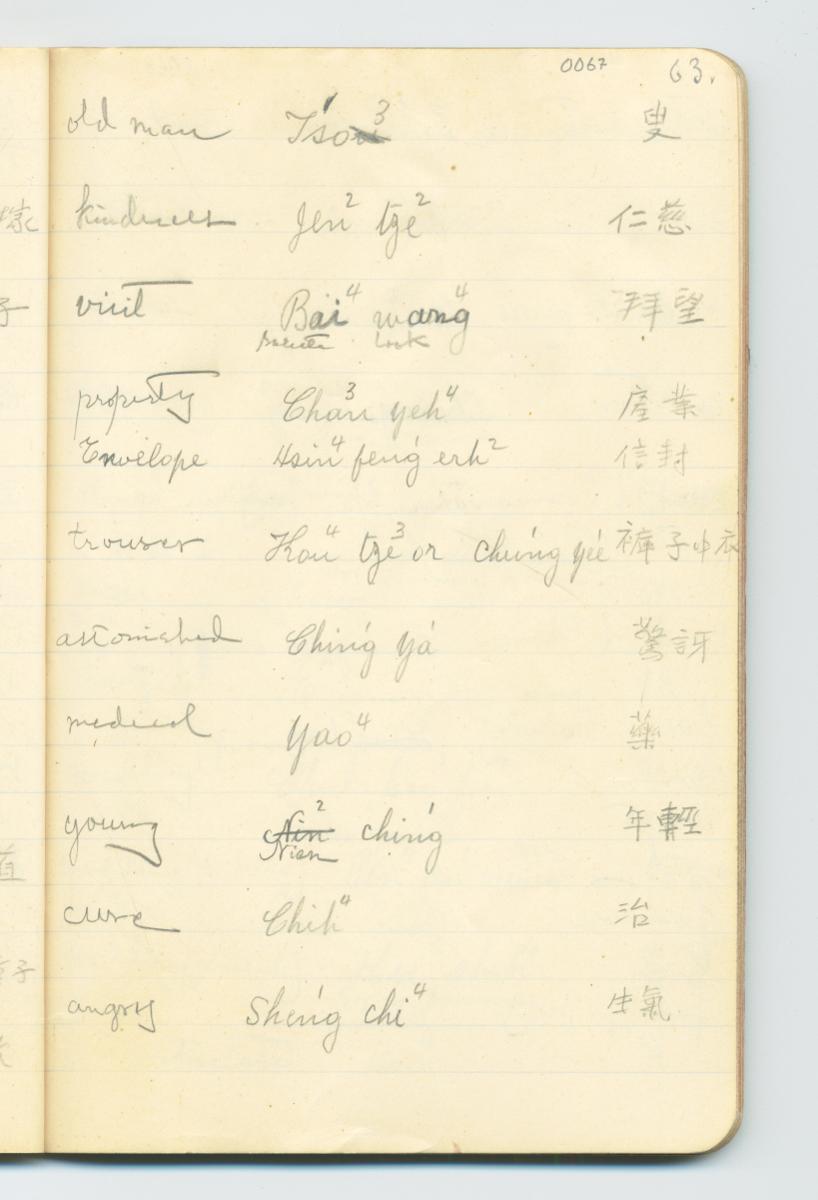 0067 63.
old man Tso 3 叟
kindness Jen² tze² 仁慈
visit Bai⁴ wang⁴ 拜望
look
property Chan³ yeh⁴ 產業
Envelope Hsin⁴ feng' erh² 信封
trouser Kou⁴ tze³ or chung' yi' 褲子中衣
astonished Ching' ya' 驚訝
medical Yao⁴ 藥
young Nin² ching' 年輕
Nien
cure Chih⁴ 治
angry Sheng' chi⁴ 生氣